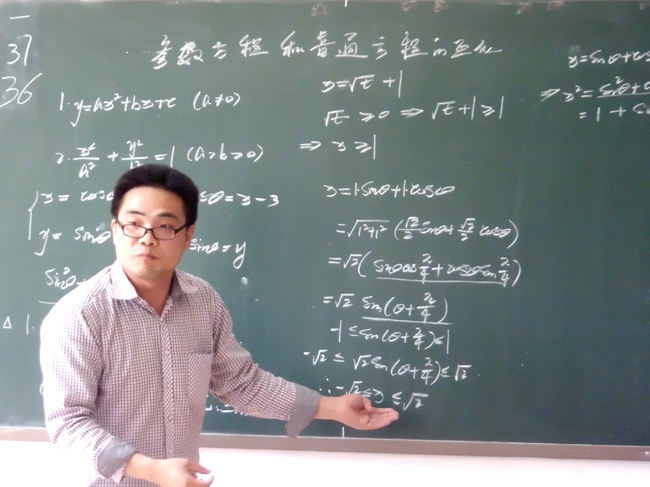 一
37
36
参数方程和普通方程的互化
1. y=ax²+bx+c (a≠0)
2. x²/a² + y²/b² = 1 (a>b>0)
x = cosθ = x-3
y = sinθ sinθ = y
sin²θ+
△ 1.
x=√t +1
√t ≥0 ⇒ √t+1≥1
⇒ x≥1
x=1·sinθ+1·cosθ
=√1²+1² (√2/2 sinθ+√2/2 cosθ)
=√2(sinθcosπ/4+cosθsinπ/4)
=√2 sin(θ+π/4)
-1≤sin(θ+π/4)≤1
-√2 ≤ √2sin(θ+π/4)≤√2
∴ -√2≤x≤√2
x=sinθ+cos
⇒ x²=sin²θ+
=1+sin